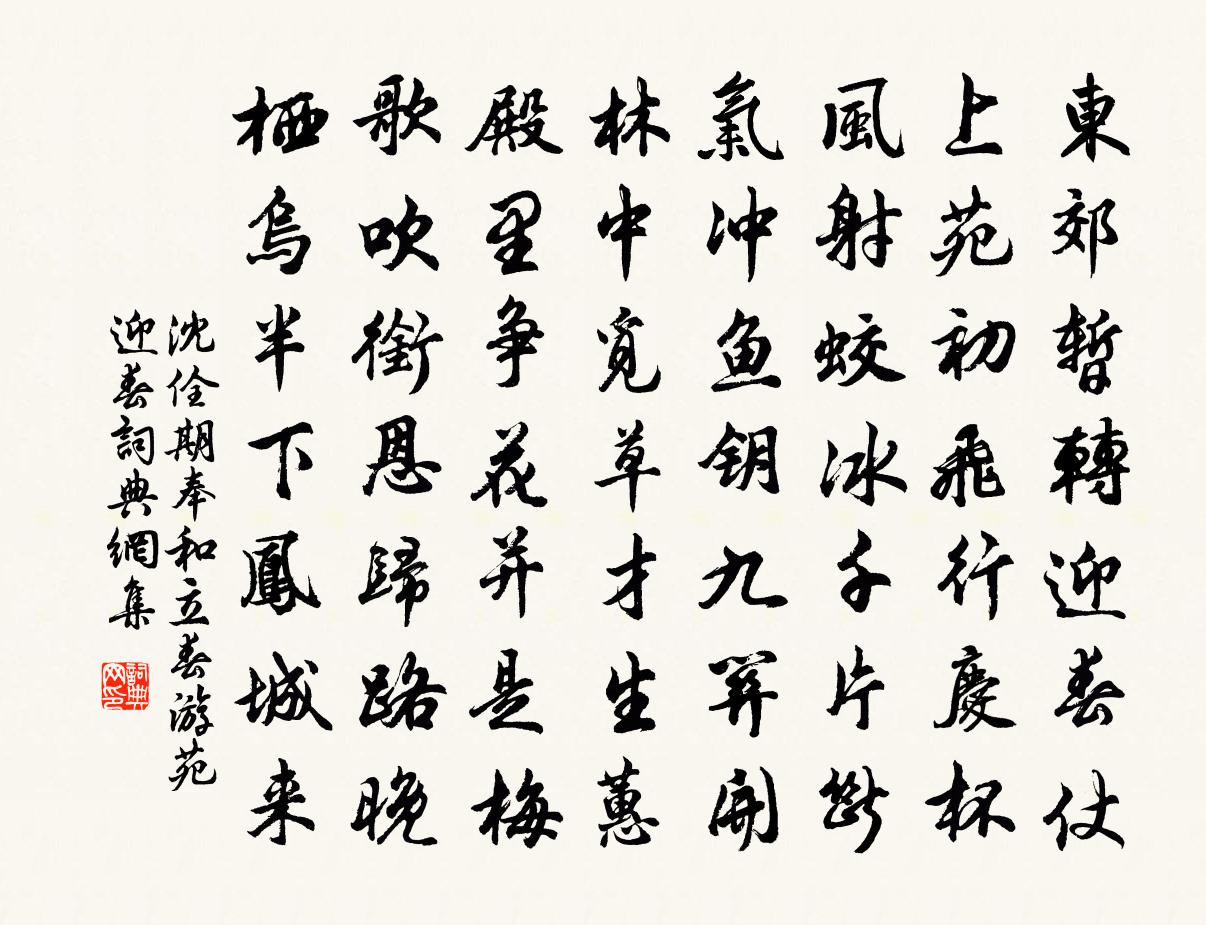 東郊暫轉迎春仗
上苑初飛行慶杯
風射蛟冰千片斷
氣冲鱼钥九關開
林中覓草才生蕙
殿里争花并是梅
歌吹銜恩歸路晚
栖烏半下鳳城来
沈佺期奉和立春游苑
迎春詞典網集
詞典网印